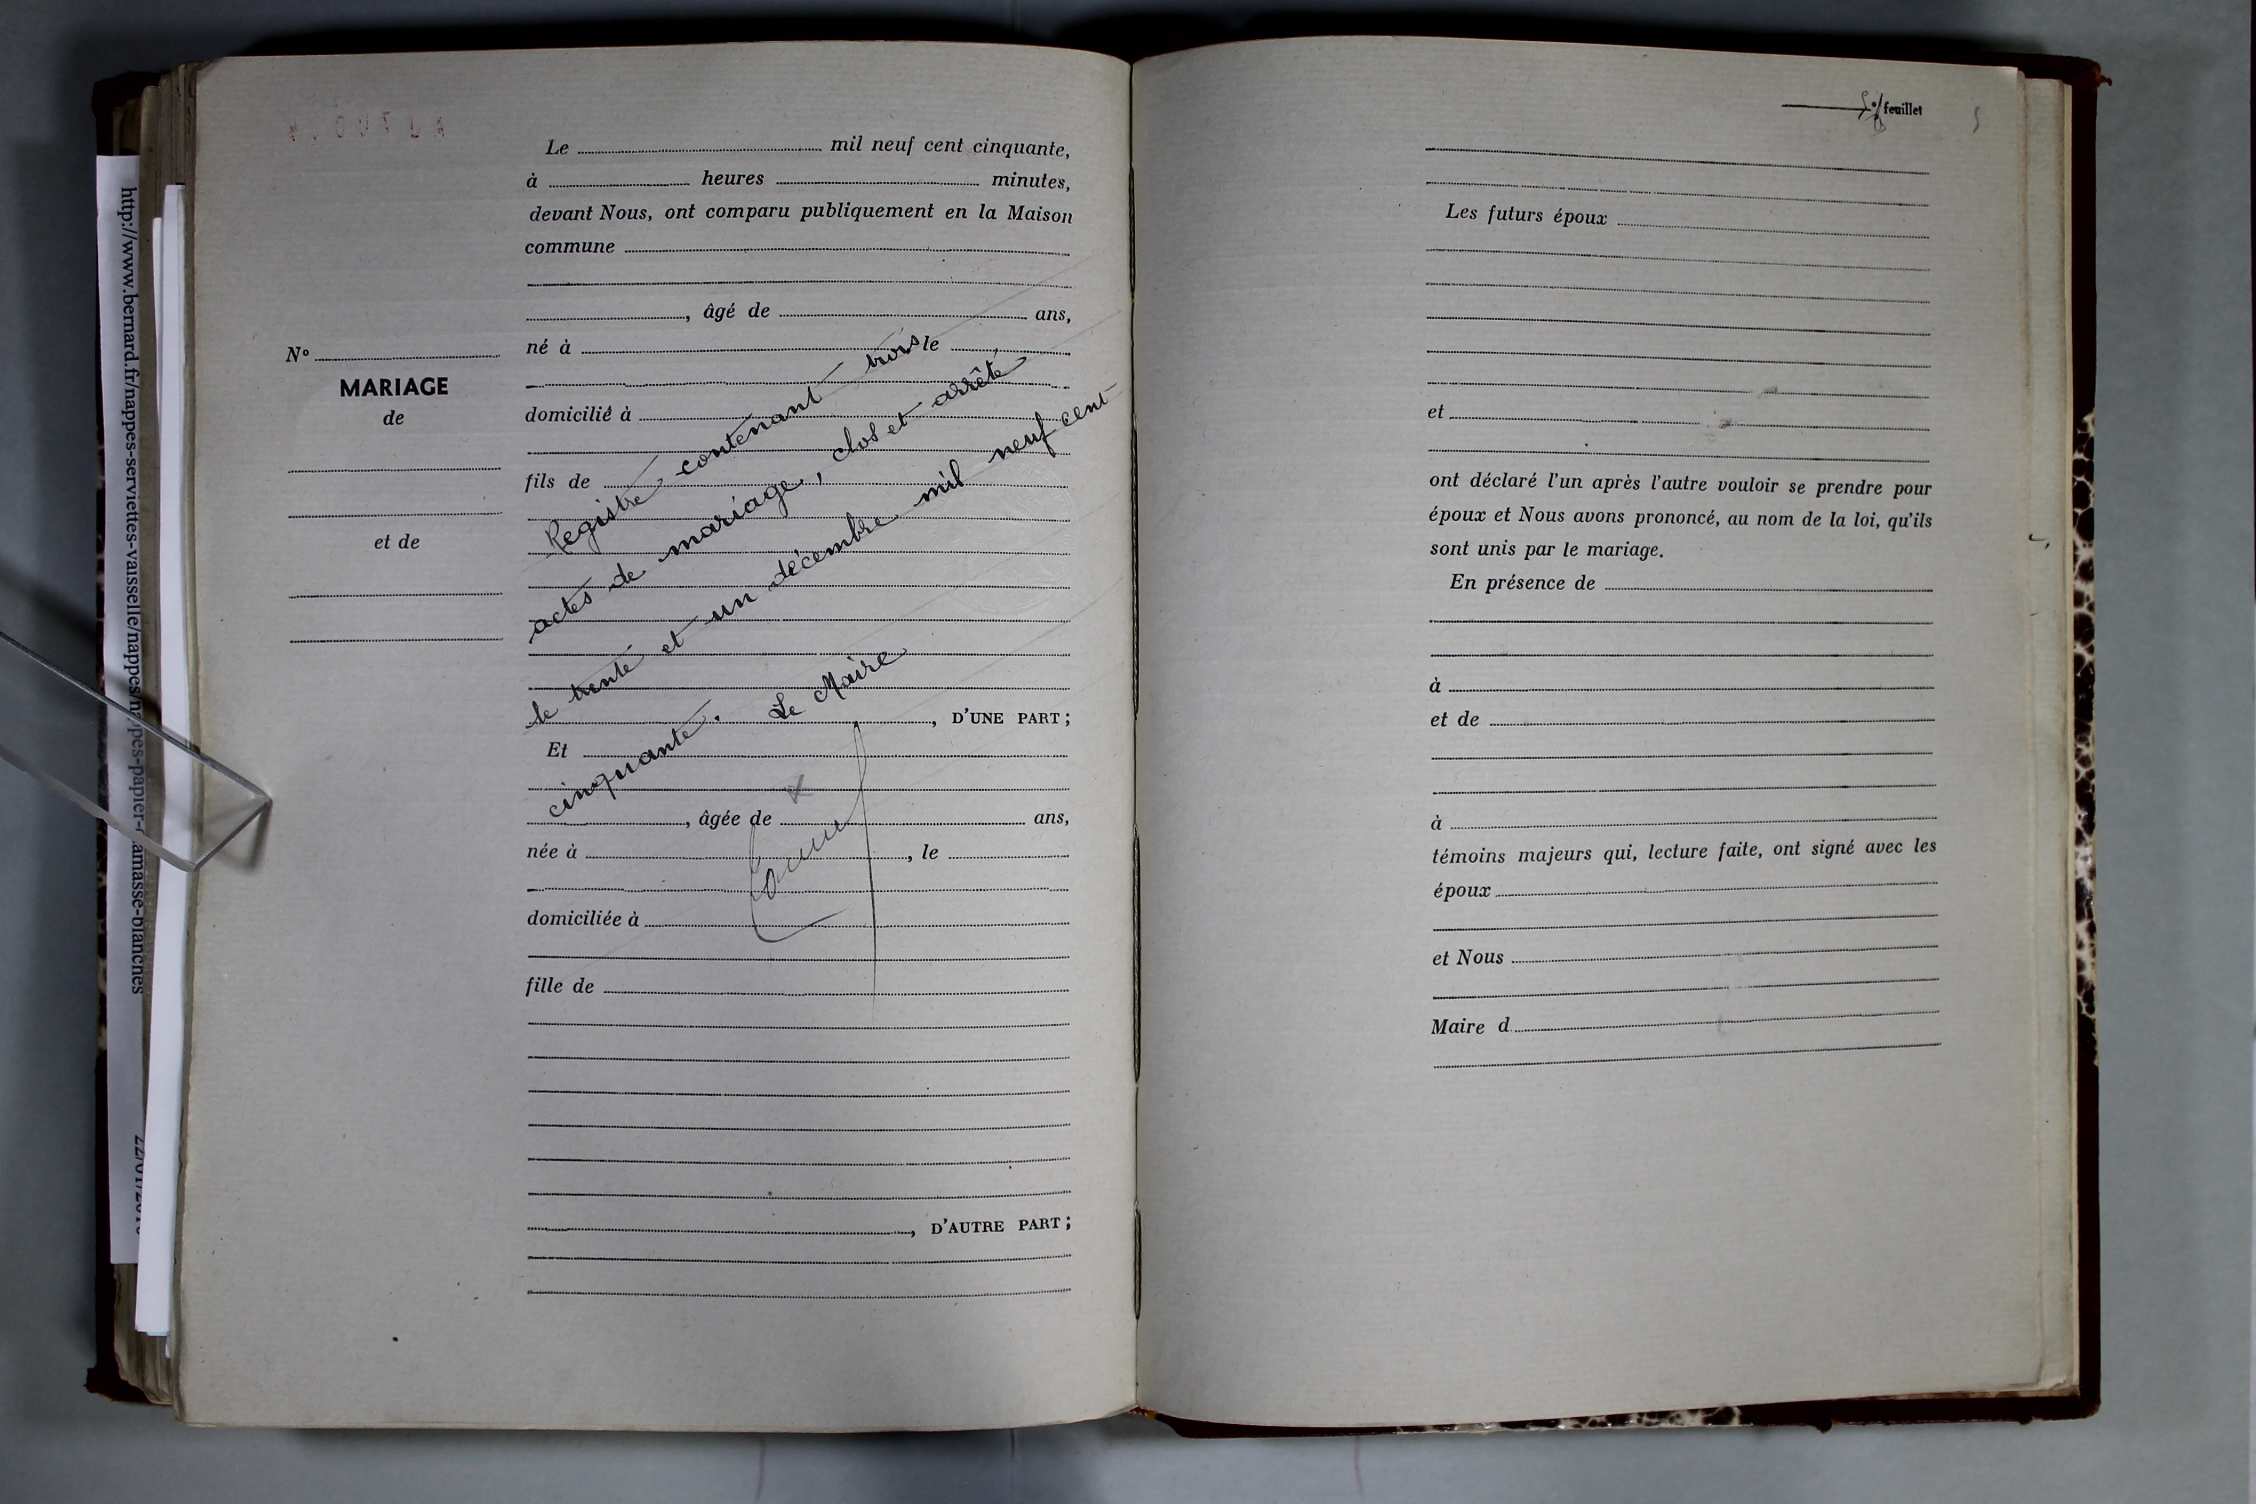 Le mil neuf cent cinquante,
à heures minutes,
devant Nous, ont comparu publiquement en la Maison
commune
, âgé de ans,
né à le
domicilié à
fils de
, D'UNE PART ;
Et
, âgée de ans,
née à , le
domiciliée à
fille de
, D'AUTRE PART ;
Nº
MARIAGE
de
et de
Registre contenant trois
actes de mariage, clos et arrêté
le trente et un décembre mil neuf cent
cinquante. Le Maire
feuillet
Les futurs époux
et
ont déclaré l'un après l'autre vouloir se prendre pour
époux et Nous avons prononcé, au nom de la loi, qu'ils
sont unis par le mariage.
En présence de
à
et de
à
témoins majeurs qui, lecture faite, ont signé avec les
époux
et Nous
Maire d
http://www.bernard.fr/nappes-serviettes-vaisselle/nappes